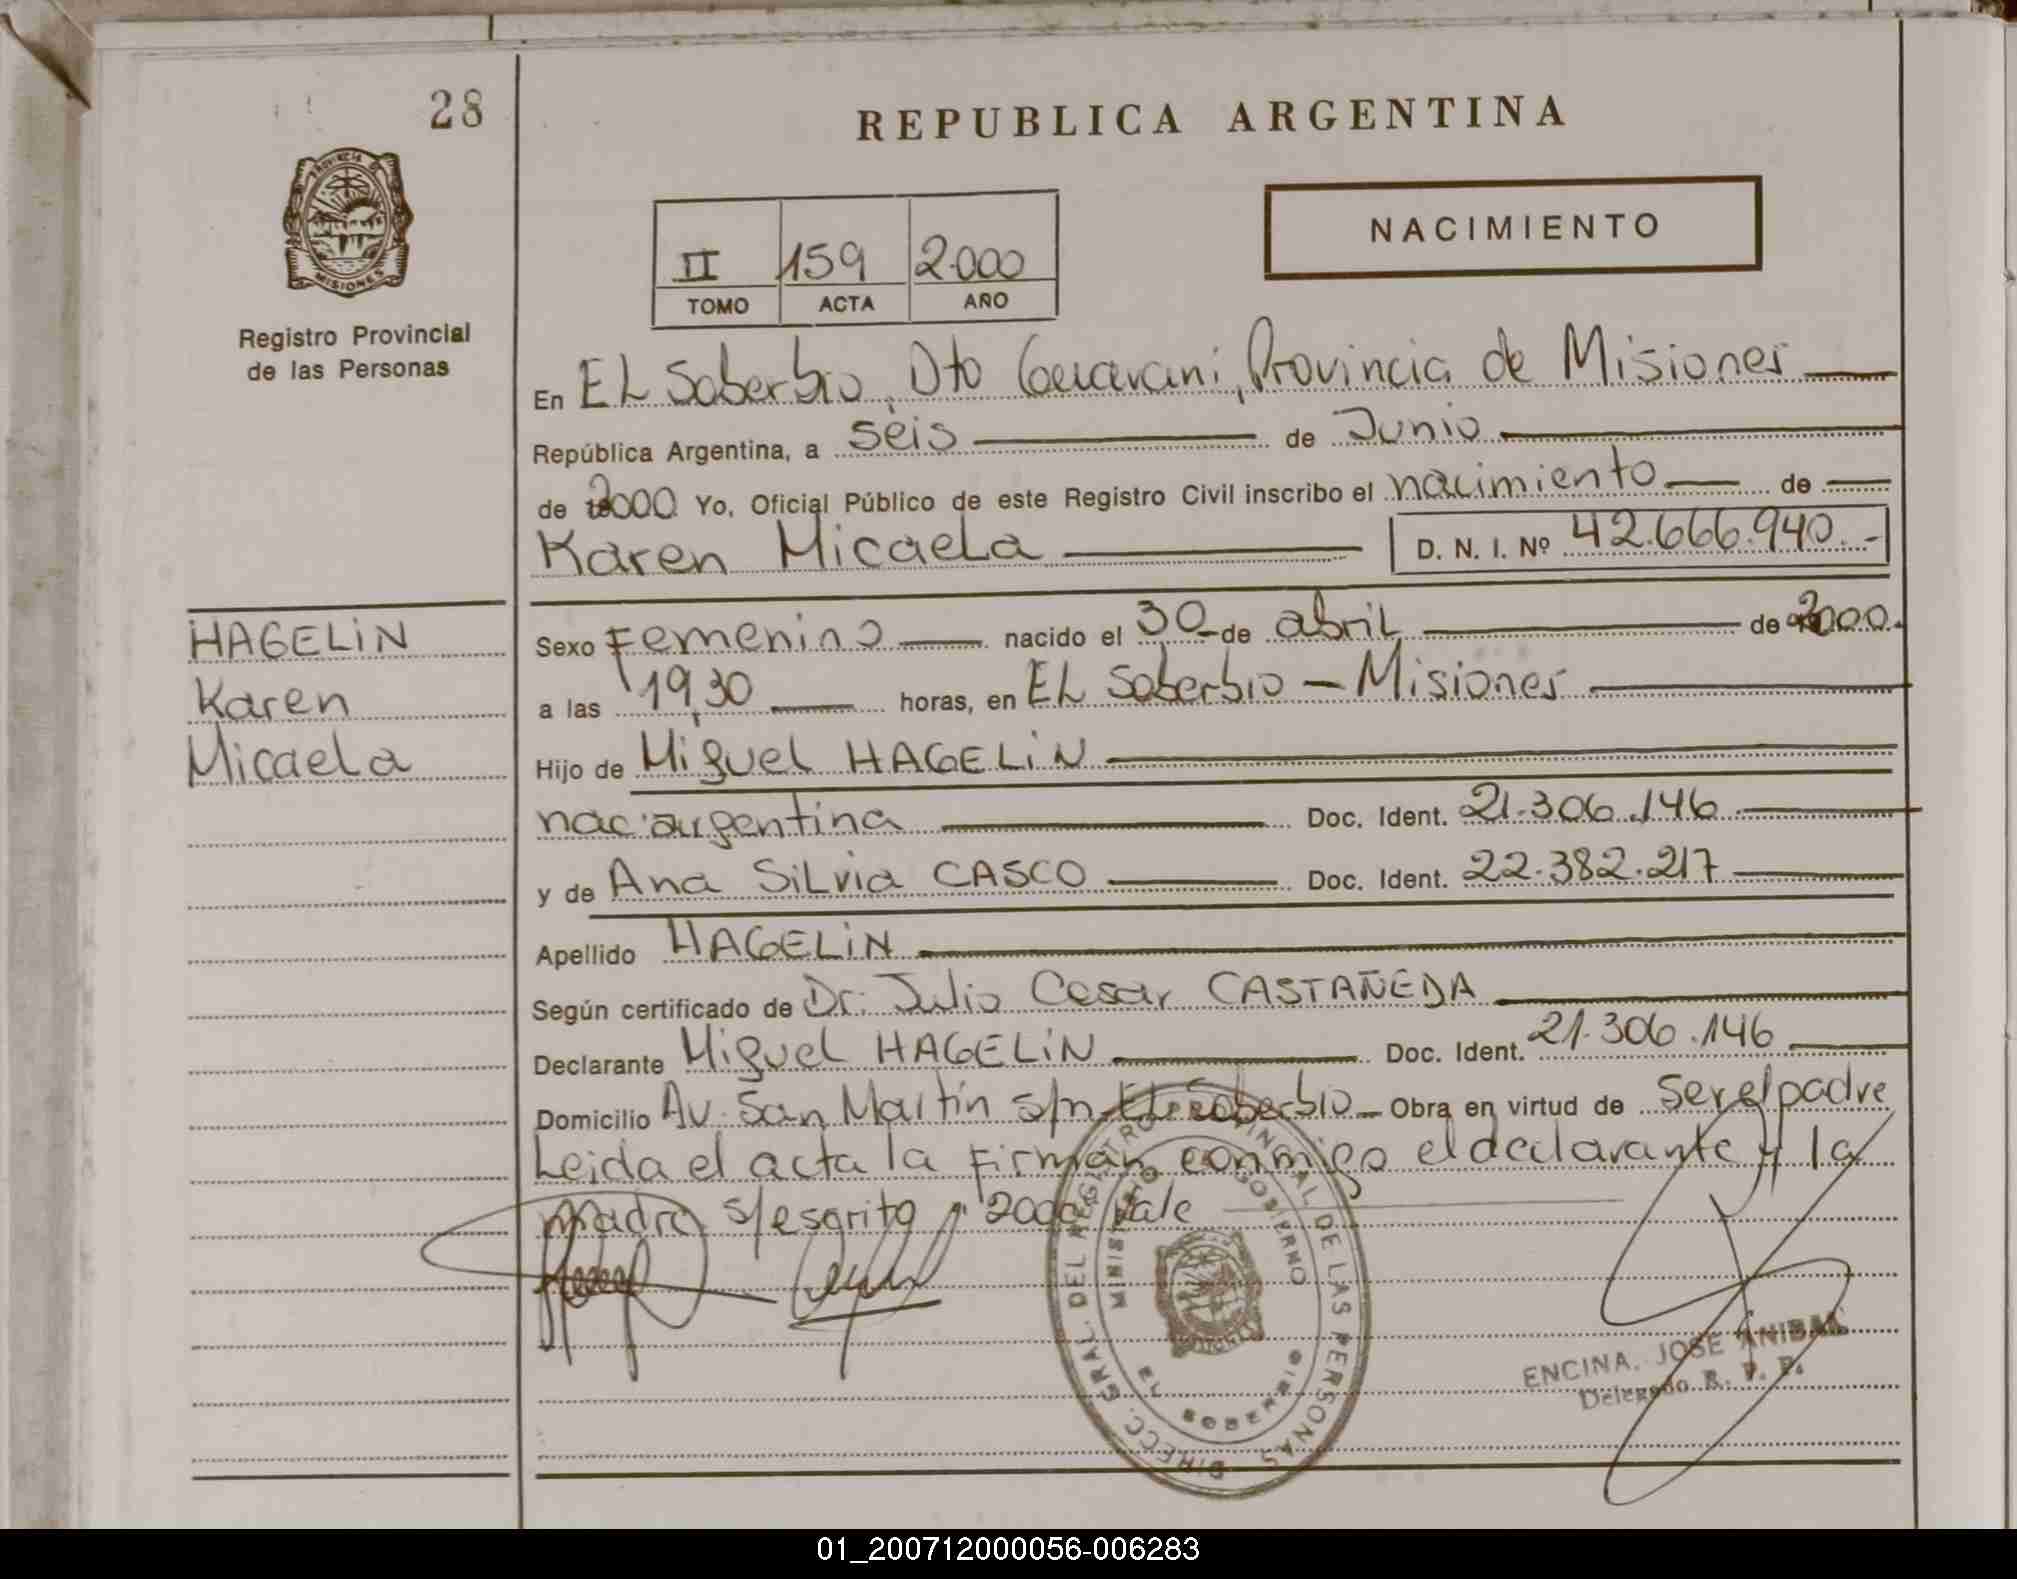 28
REPUBLICA ARGENTINA
PROVINCIA DE
MISIONES
NACIMIENTO
II 159 2.000
TOMO ACTA AÑO
Registro Provincial
de las Personas
En EL Soberbio, Dto Guarani, Provincia de Misiones
República Argentina, a seis de Junio
de 2000 Yo, Oficial Público de este Registro Civil inscribo el nacimiento de
Karen Micaela D. N. I. Nº 42.666.940.-
HAGELIN
Karen
Micaela
Sexo Femenino nacido el 30 de abril de 2000.
a las 19,30 horas, en EL Soberbio - Misiones
Hijo de Miguel HAGELIN
nac. argentina Doc. Ident. 21.306.146
y de Ana Silvia CASCO Doc. Ident. 22.382.217
Apellido HAGELIN
Según certificado de Dr. Julio Cesar CASTAÑEDA
Declarante Miguel HAGELIN Doc. Ident. 21.306.146
Domicilio Av. San Martín s/n EL Soberbio Obra en virtud de ser el padre
Leida el acta la Firman conmigo el declarante y la
madre s/escrito "2000" Vale
DIRECC. GRAL. DEL REGISTRO PROVINCIAL DE LAS PERSONAS
MINISTERIO GOBIERNO
EL SOBERBIO
ENCINA, JOSE ANIBAL
Delegado R. P. P.
01_200712000056-006283